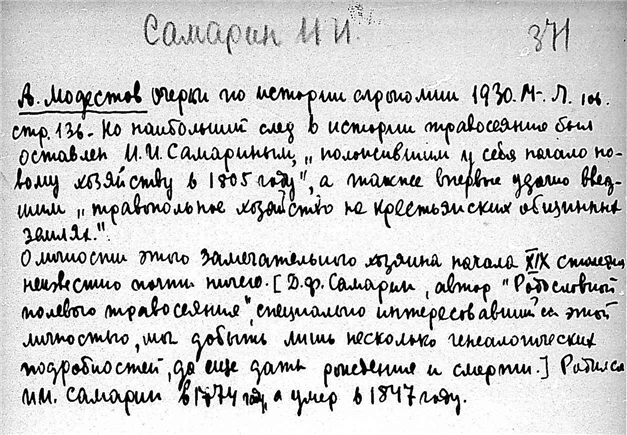 Самарин И И.
371
А. Модестов очерки по истории агрономии 1930. М-Л. 106.
стр. 136. Но наибольший след в истории травосеяния был
оставлен И.И. Самариным, "положившим у себя начало но-
вому хозяйству в 1805 году", а также впервые удачно введ-
шим "травопольное хозяйство на крестьянских общинных
землях.".
О личности этого замечательного хозяина начала XIX столетия
неизвестно почти ничего. [Д.Ф. Самарин, автор "Родословной
полевого травосеяния", специально интересовавшийся этой
личностью, мог добыть лишь несколько генеалогических
подробностей, да еще даты рождения и смерти.] Родился
Самарин в 1774 году, а умер в 1847 году.